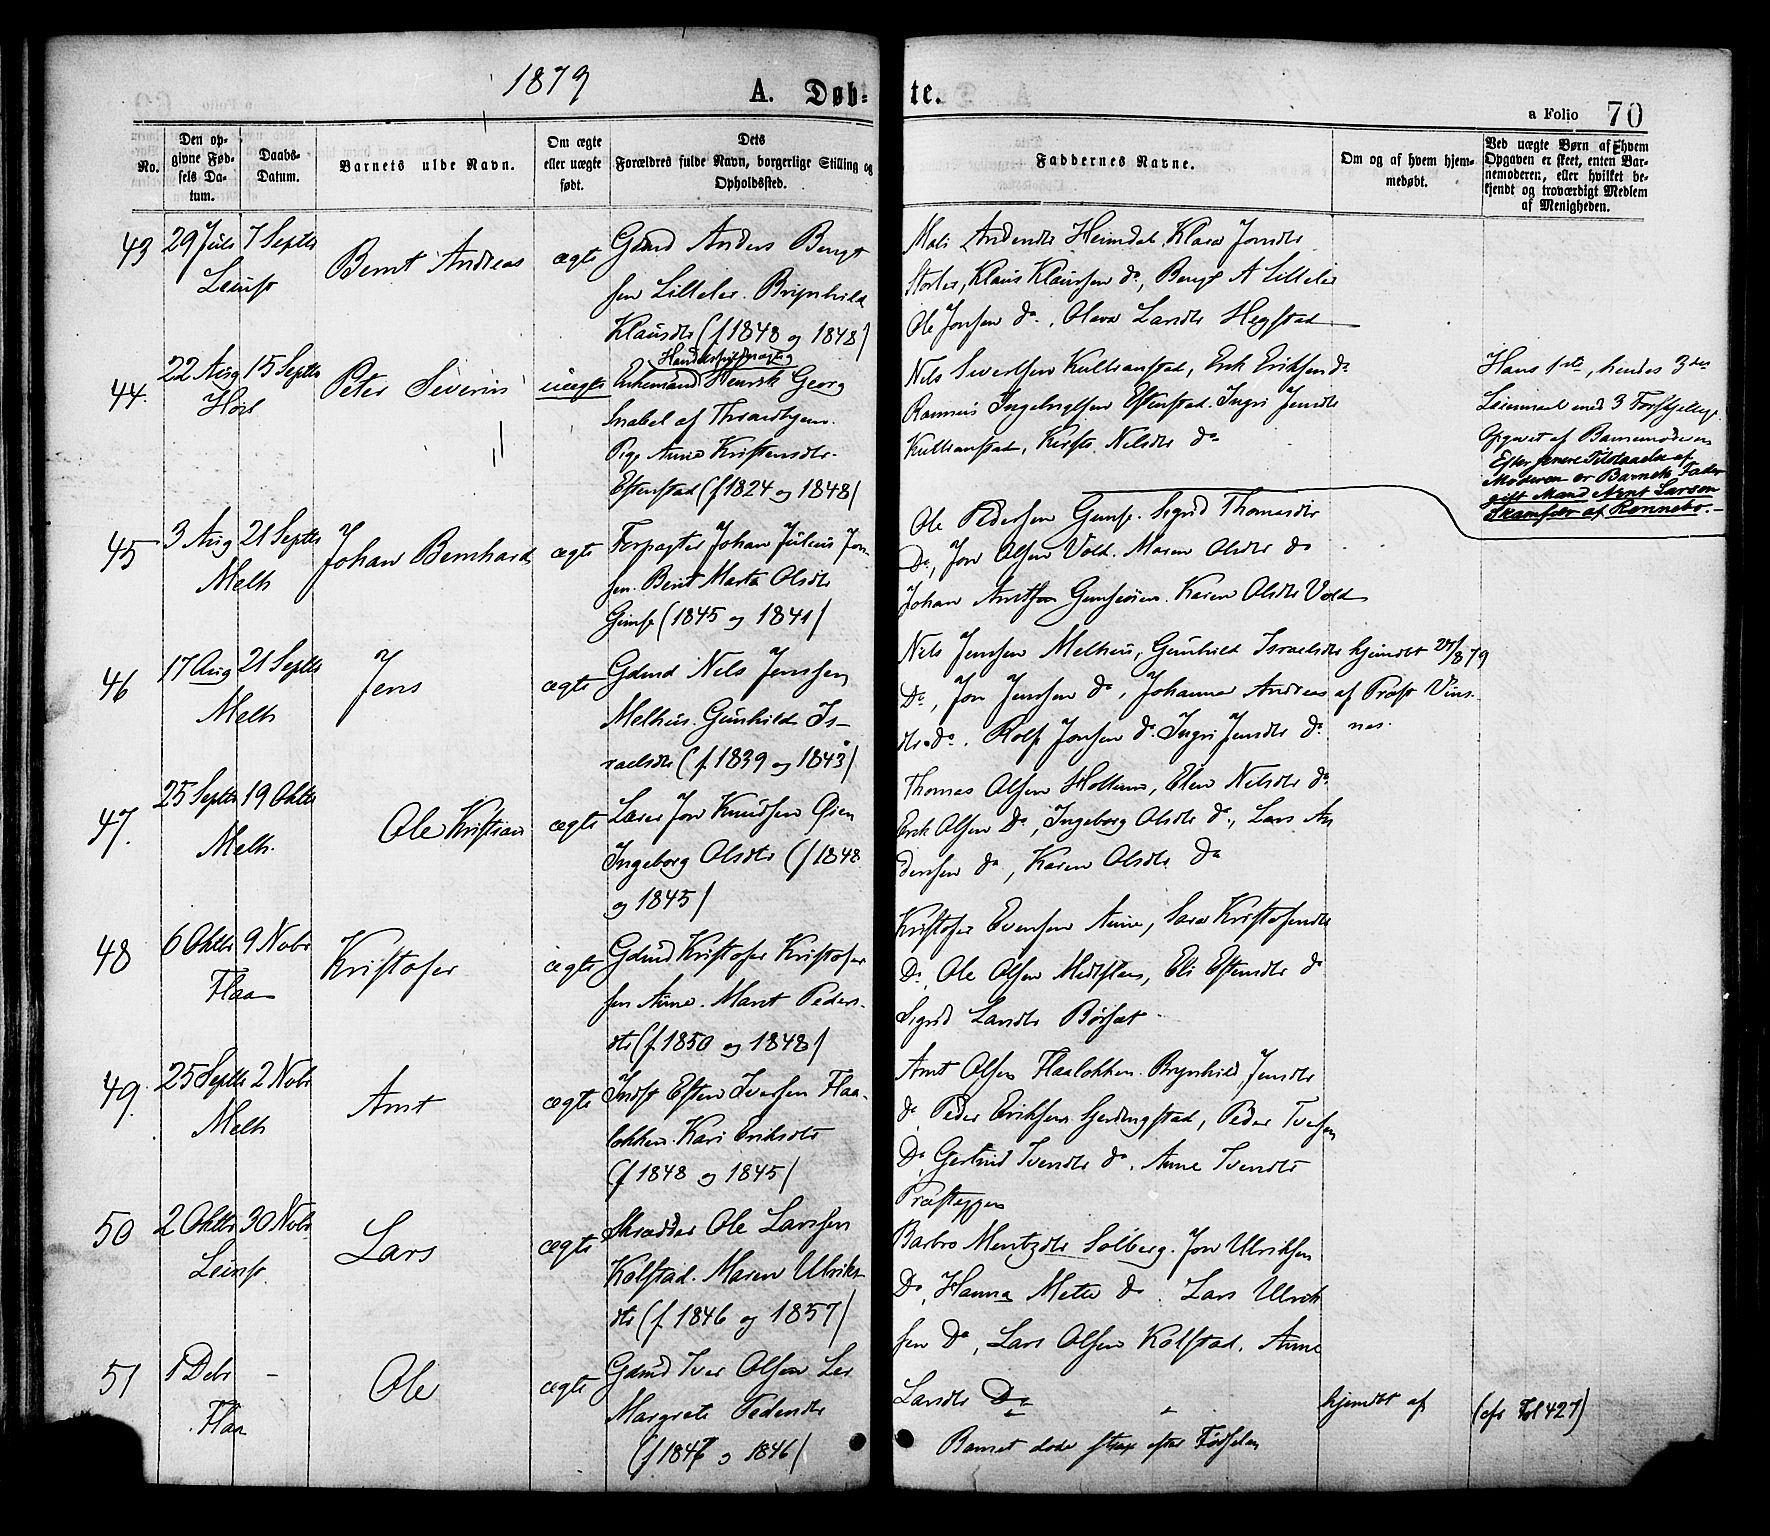 1879
A. Døb-
te.
a Folio 70
No.
Den op-
givne Fød-
sels Da-
tum.
Daabs-
Datum.
Barnets fulde Navn.
Om ægte
eller uægte
født.
Dets
Forældres fulde Navn, borgerlige Stilling og
Opholdssted.
Faddernes Navne.
Om og af hvem hjem-
medøbt.
Ved uægte Børn af hvem
Opgaven er skeet, enten Bar-
nemoderen, eller hvilket be-
kjendt og troværdigt Medlem
af Menigheden.
43 29 Juli 7 Septbr Bernt Andreas ægte Gdmd Anders Bengt
Leinst
sen Lilleler. Brynhild
Klausdtr (f 1848 og 1848)
Mali Andersdtr Heimdal, Klara Jonsdtr
Storler, Klaus Klaussen do, Bengt A Lilleler
Ole Jonsen do, Olava Larsdtr Hegstad
44. 22 Aug 15 Septbr Peter Severin uægte Enkemand Henrik Georg
Snabel af Throndhjem.
Pige Anne Kristensdtr
Estenstad (f 1824 og 1848)
Nils Sivertsen Kulleanstad, Erik Eriksen do
Ingebrigtsen Estenstad. Ingri Jensdtr
Kulleanstad, Nilsdtr do
Hans 1ste, hendes 3die
Leiermaal med 3 Forskjellige
Opgivet af Barnemoderen
Efter senere Tilstaaelse af
Moderen er Barnets Fader
gift Mand Arnt Larsen
Skamfer af Rennebo.
45 3 Aug 21 Septbr Johan Bernhard ægte Forpagter Johan Julius Jon-
Melh
sen. Berit Marta Olsdtr
Gimse (1845 og 1841)
Ole Pedersen Gimse. Sigrid Thomasdtr
Do, Jon Olsen Vold. Maren Olsdtr do
Johan Arntsen Gimseøien. Karen Olsdtr Vold
46 17 Aug 21 Septbr Jens ægte Gdmd Nils Jenssen
Melh
Melhus. Gunhild Is-
raelsdtr (f 1839 og 1843)
Nils Jenssen Melhus, Gunhild Israelsdtr
Do, Jon Jenssen do, Johanna Andreas
dtr do. Rolf Jonsen do. Ingri Jensdtr do
hjemdbt 24/8 79
af Præst Vins-
nes.
47. 25 Septbr 19 Oktbr Ole Kristian ægte Lærer Jon Knudsen Øien
Melh.
Ingeborg Olsdtr (f 1848
og 1845)
Thomas Olsen Hollum, Elen Nilsdtr do
Erik Olsen Do, Ingeborg Olsdtr do, Lars An
dersen do, Karen Olsdtr do
48 6 Oktbr 9 Novbr Kristofer ægte Gdmd Kristofer Kristofer
Flaa
sen Aune. Marit Peders-
dtr (f. 1850 og 1848)
Kristofer Evensen Aune, Sara Kristofersdtr
Do, Ole Olsen Midtflaa, Eli Estensdtr do
Sigrid Larsdtr Børset
49. 25 Septbr 2 Novbr Arnt ægte Indst Esten Iversen Flaa-
Melh
løkken. Kari Eriksdtr
(f 1848 og 1845)
Arnt Olsen Flaaløkken. Brynhild Jensdtr
do Peder Eriksen Gerdingstad, Peder Iversen
Do, Gertrud Iversdtr do, Anne Iversdtr
Præsteggen
50 2 Oktbr 30 Novbr Lars ægte Skrædder Ole Larssen
Leinst.
Kolstad. Maren Ulriks-
dtr (f 1846 og 1857)
Barbro Mentzdtr Solberg. Jon Ulriksen
Do, Hanna Mette do. Lars Ulrik
sen Do, Lars Olsen Kolstad. Anne
Larsdtr Do
51 1 Debr - Ole ægte Gdmd Iver Olsen Ler
Flaa
Margrete Pedersdtr
(f 1847 og 1846)
Barnet døde strax efter Fødselen
hjemdbt af
(cfr Fol 427)